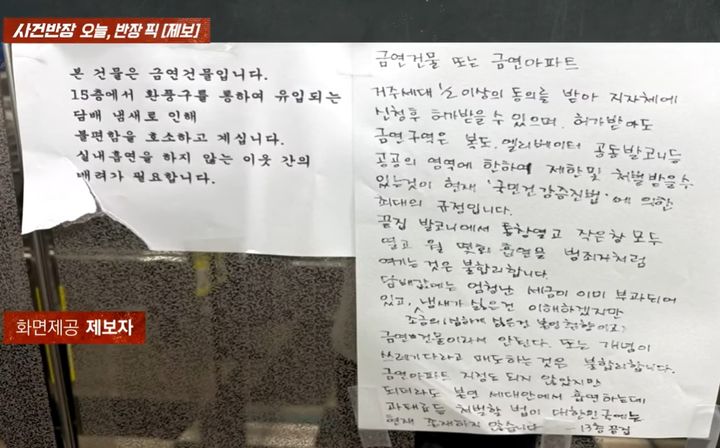 사건반장 오늘, 반장 픽 [제보]
본 건물은 금연건물입니다.
15층에서 환풍구를 통하여 유입되는
담배 냄새로 인해
불편함을 호소하고 계십니다.
실내흡연을 하지 않는 이웃 간의
배려가 필요합니다.
금연건물 또는 금연아파트
거주세대 ½ 이상의 동의를 받아 지자체에
신청후 허가받을 수 있으며. 허가받아도
금연구역은 복도, 엘리베이터 공동발코니등
공공의 영역에 한하여 제한 및 처벌 받을수
있는것이 현재 '국민건강증진법'에 의한
최대의 규정입니다.
끝집 발코니에서 통창열고 작은창 모두
열고 월 몇회 흡연을 범죄자처럼
여기는 것은 불합리합니다.
담배값에는 엄청난 세금이 이미 부과되어
있고, 냄새가 싫은건 이해하겠지만
조금의 싫은건
금연건물이라서 안된다. 또는 개념이
쓰레기다라고 매도하는것은 불합리합니다.
금연아파트 지정도 되지 않았지만
되더라도 본연 세대안에서 흡연하는데
과태료등 처벌할 법이 대한민국에는
현재 존재하지 않습니다 - 13층 끝집
화면제공 제보자